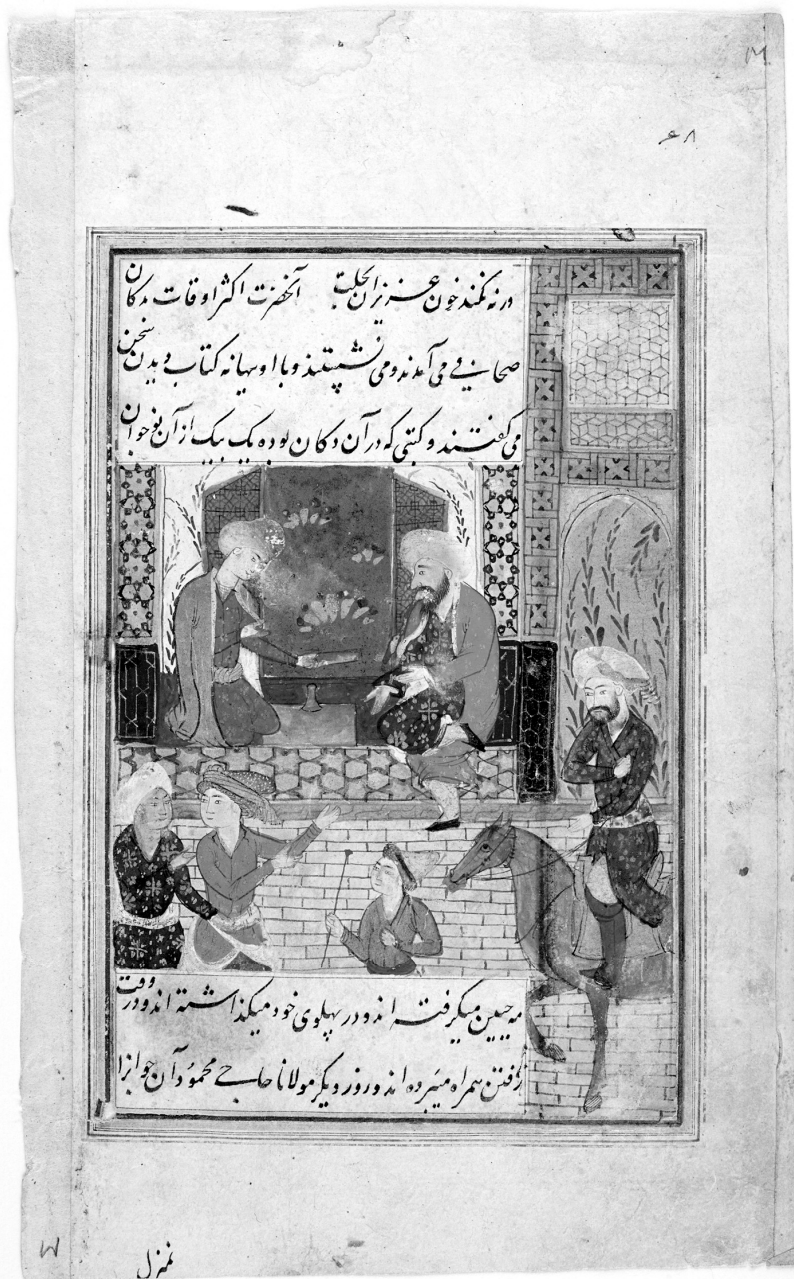 ۶۸
ورنه کمند خون عزیزان بحلیت آنحضرت اکثر اوقات بدکان
صحافی می آمدند و می نشستند و با او بهانه کتاب دیدن سخن
می گفتند و کتبی که در آن دکان بوده یک بیک از آن نوجوان
مه جبین میگرفته اند و در پهلوی خود میگذاشته اند و در وقت
رفتن همراه میبرده اند و روز دیگر مولانا حاجی محمود آن جوانرا
بمنزل